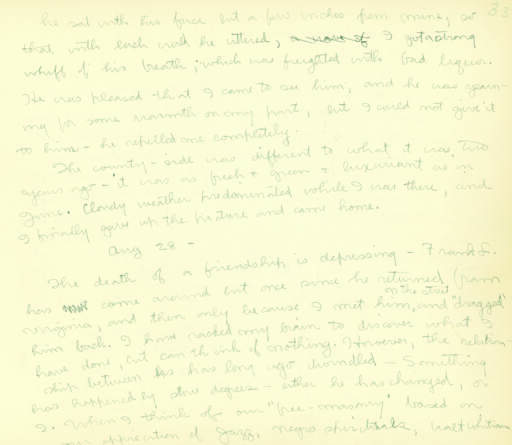 33
he sat with his face but a few inches from mine, so
that with each word he uttered, I got a strong
whiff of his breath, which was freighted with bad liquor.
He was pleased that I came to see him, and he was yearn-
ing for some warmth on my part, but I could not give it
to him - he repelled me completely.
The country-side was different to what it was two
years ago - it was as fresh & green & luxuriant as in
June. Cloudy weather predominated while I was there, and
I finally gave up the picture and came home.
Aug 28 -
The death of a friendship is depressing - Frank L.
has come around but once since he returned from
on the street
Virginia, and then only because I met him, and "dragged"
him back. I have racked my brain to discover what I
have done, but can think of nothing. However, the relation-
ship between us has long ago dwindled - Something
has happened by slow degrees - either he has changed, or
I. When I think of our "free-masonry" based on
our appreciation of Jazz, negro spirituals, Walt Whitman